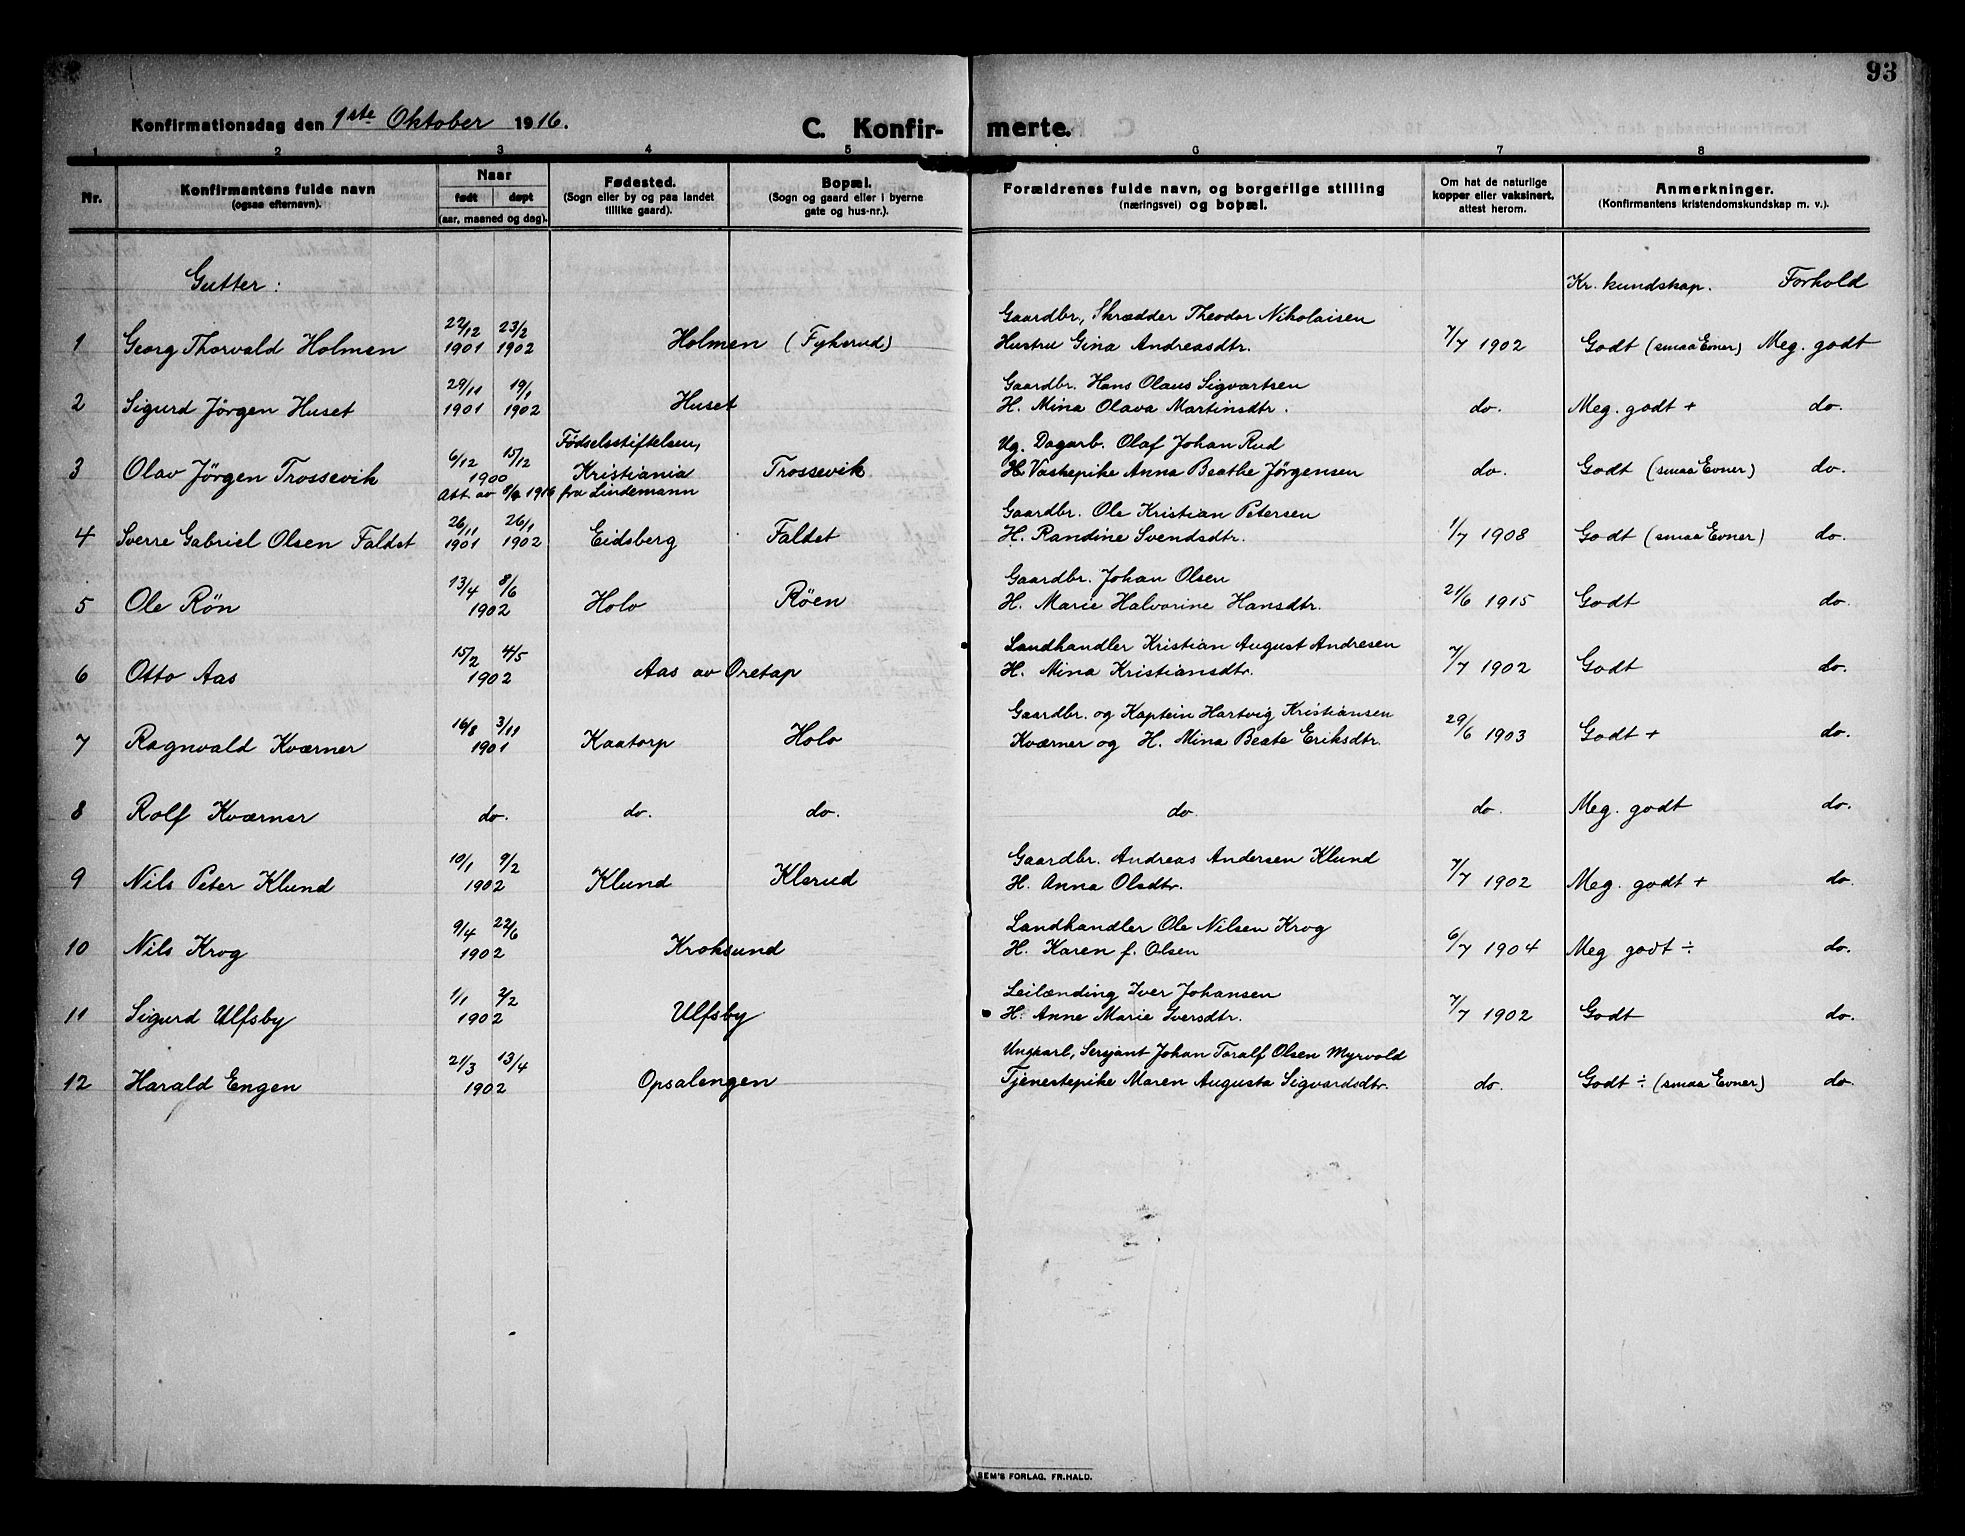 93
Konfirmationsdag den 1ste Oktober 1916.
C. Konfir- merte.
1 2 3 4 5 6 7 8
Nr. Konfirmantens fulde navn (ogsaa efternavn). Naar født døpt (aar, maaned og dag). Fødested. (Sogn eller by og paa landet tillike gaard). Bopæl. (Sogn og gaard eller i byerne gate og hus-nr.). Forældrenes fulde navn, og borgerlige stilling (næringsvei) og bopæl. Om hat de naturlige kopper eller vaksinert, attest herom. Anmerkninger. (Konfirmantens kristendomskundskap m. v.).
Gutter: Kr. kundskap. Forhold
22/12 23/2 Gaardbr, Skrædder Theodor Nikolaisen
1 Georg Thorvald Holmen 1901 1902 Holmen (Fykerud) Hustru Gina Andreasdtr. 7/7 1902 Godt (smaa Evner) Meg. godt
29/11 19/1 Gaardbr. Hans Olaus Sigvartsen
2 Sigurd Jörgen Huset 1901 1902 Huset H. Mina Olava Martinsdtr. do. Meg. godt + do.
6/12 15/12 Fødselsstiftelsen, Ug. Dagarb. Olaf Johan Rud
3 Olav Jörgen Trossevik 1900 Kristiania Trossevik Vaskepike Anna Beathe Jørgensen do. Godt (smaa Evner) do.
Att. av 1916 fra Lindemann
26/11 26/1 Gaardbr. Ole Kristian Petersen
4 Sverre Gabriel Olsen Faldet 1901 1902 Eidsberg Faldet H. Randine Svendsdtr. 1/7 1908 Godt (smaa Evner) do.
13/4 8/6 Gaardbr. Johan Olsen
5 Ole Rön 1902 Holo Röen H. Marie Halvorine Hansdtr. 21/6 1915 Godt do.
15/2 4/5 Landhandler Kristian August Andresen
6 Otto Aas 1902 Aas av Oretap H. Mina Kristiansdtr. 7/7 1902 Godt do.
16/8 3/11 Gaardbr. og Kaptein Hartvig Kristiansen
7 Ragnvald Kværner 1901 Kaatorp Holo Kværner og H. Mina Beate Eriksdtr. 29/6 1903 Godt + do.
8 Rolf Kværner do. do. do. do. do. Meg. godt do.
10/1 9/2 Gaardbr. Andreas Andersen Klund
9 Nils Peter Klund 1902 Klund Klerud H. Anna Olsdtr. 7/7 1902 Meg. godt + do.
9/4 22/6 Landhandler Ole Nilsen Krog
10 Nils Krog 1902 Kroksund H. Karen f. Olsen 6/7 1904 Meg godt ÷ do.
1/1 2/2 Leilænding Iver Johansen
11 Sigurd Ulfsby 1902 Ulfsby H. Anne Marie Iversdtr. 7/7 1902 Godt do.
21/3 13/4 Ungkarl, Sersjant Johan Toralf Olsen Myrvold
12 Harald Engen 1902 Opsalengen Tjenestepike Maren Augusta Sigvardsdtr. do. Godt ÷ (smaa Evner) do.
SEM'S FORLAG, FR.HALD.